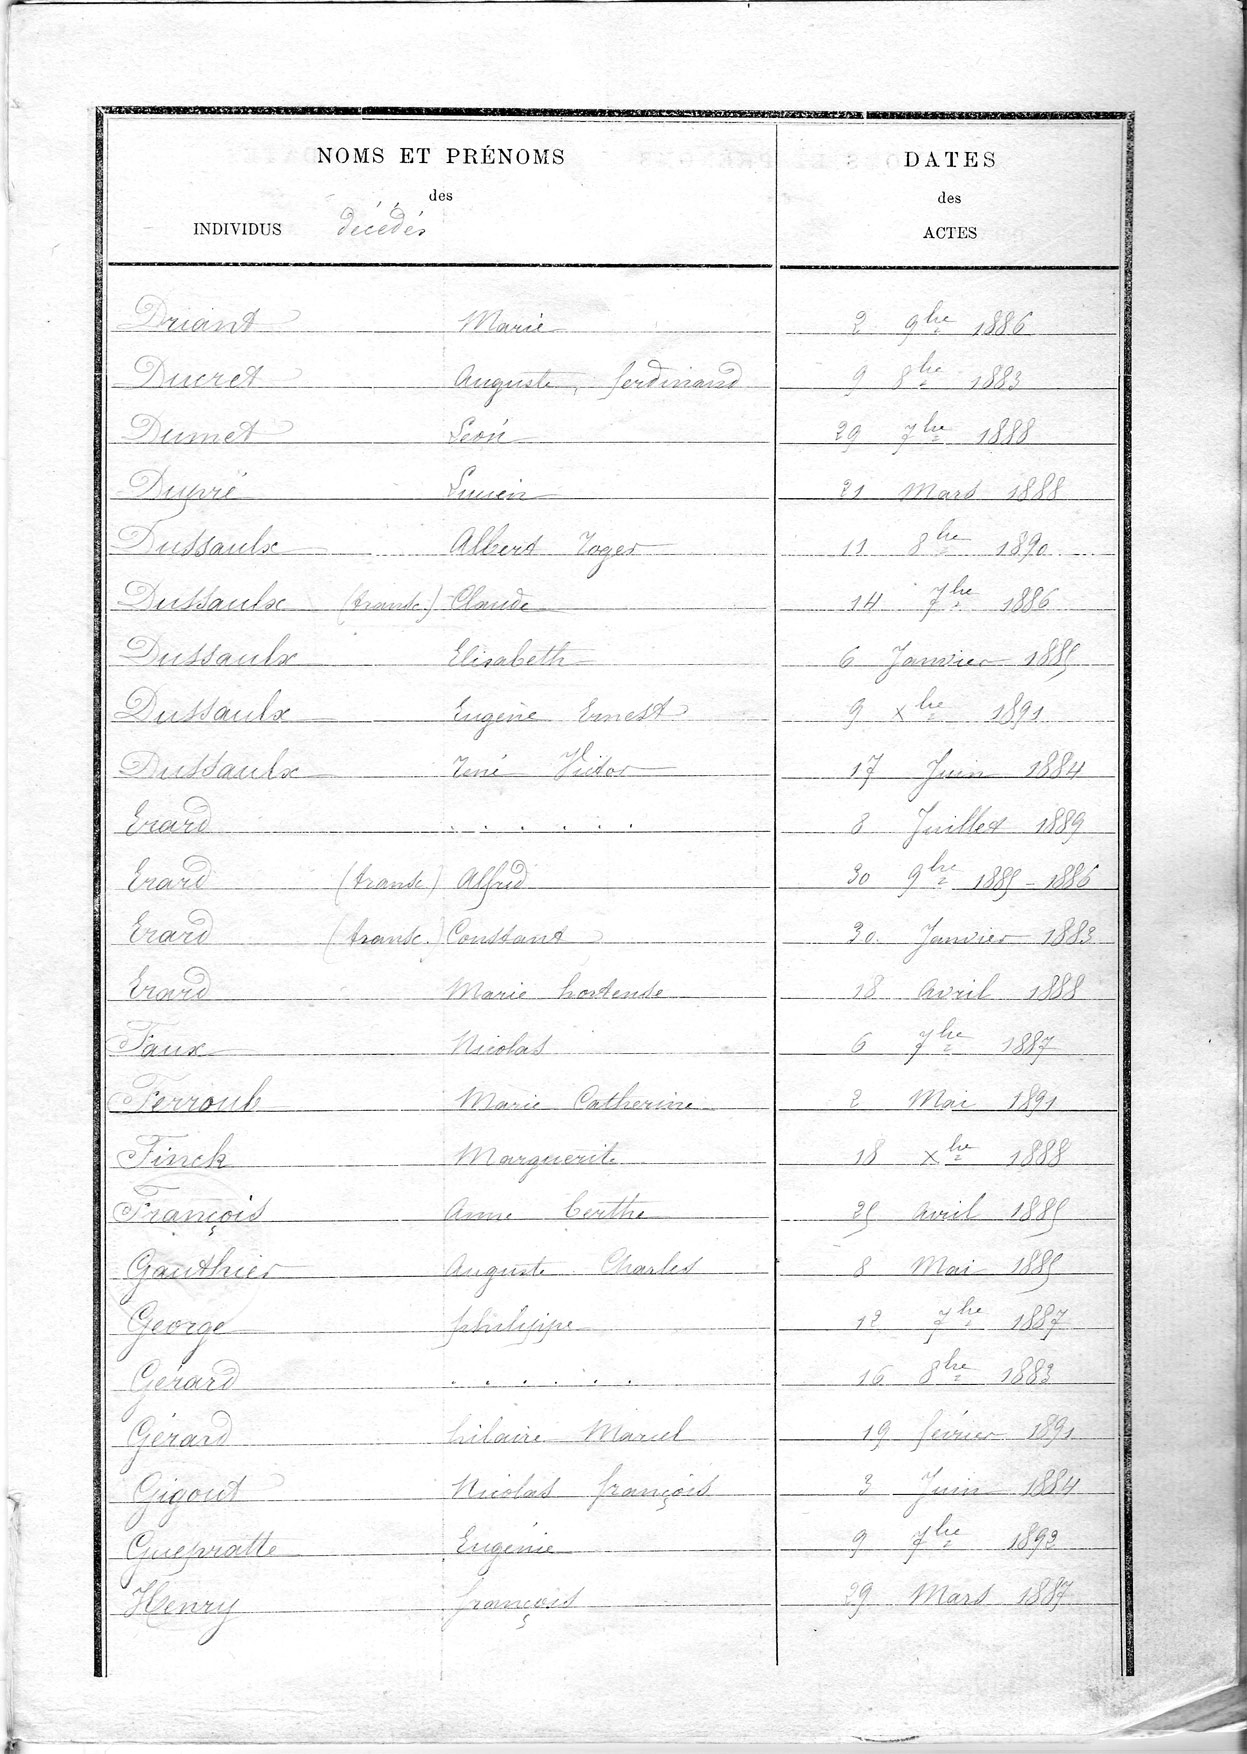 NOMS ET PRÉNOMS DATES
des des
INDIVIDUS décédés ACTES
Driant Marie 2 9bre 1886
Ducret Auguste, ferdinand 9 8bre 1883
Dumet Léon 29 7bre 1888
Dupré Lucien 21 Mars 1888
Dussaulx Albert Roger 11 8bre 1890
Dussaulx (transc.) Claude 14 7bre 1886
Dussaulx Elisabeth 6 Janvier 1885
Dussaulx Eugène Ernest 9 xbre 1891
Dussaulx René Victor 17 Juin 1884
Erard . . . . . . 8 Juillet 1889
Erard (transc) Alfred 30 9bre 1885 - 1886
Erard (transc.) Constant 30 Janvier 1883
Erard Marie hortense 18 Avril 1888
Faux Nicolas 6 7bre 1887
Ferroul Marie Catherine 2 Mai 1891
Finck Marguerite 18 xbre 1888
François Anne berthe 25 Avril 1885
Gauthier Auguste Charles 8 Mai 1885
George philippe 12 7bre 1887
Gérard . . . . . . 16 8bre 1883
Gérard hilaire Marcel 19 février 1891
Gigout Nicolas françois 3 Juin 1884
Guepratte Eugénie 9 7bre 1892
Henry françois 29 Mars 1887